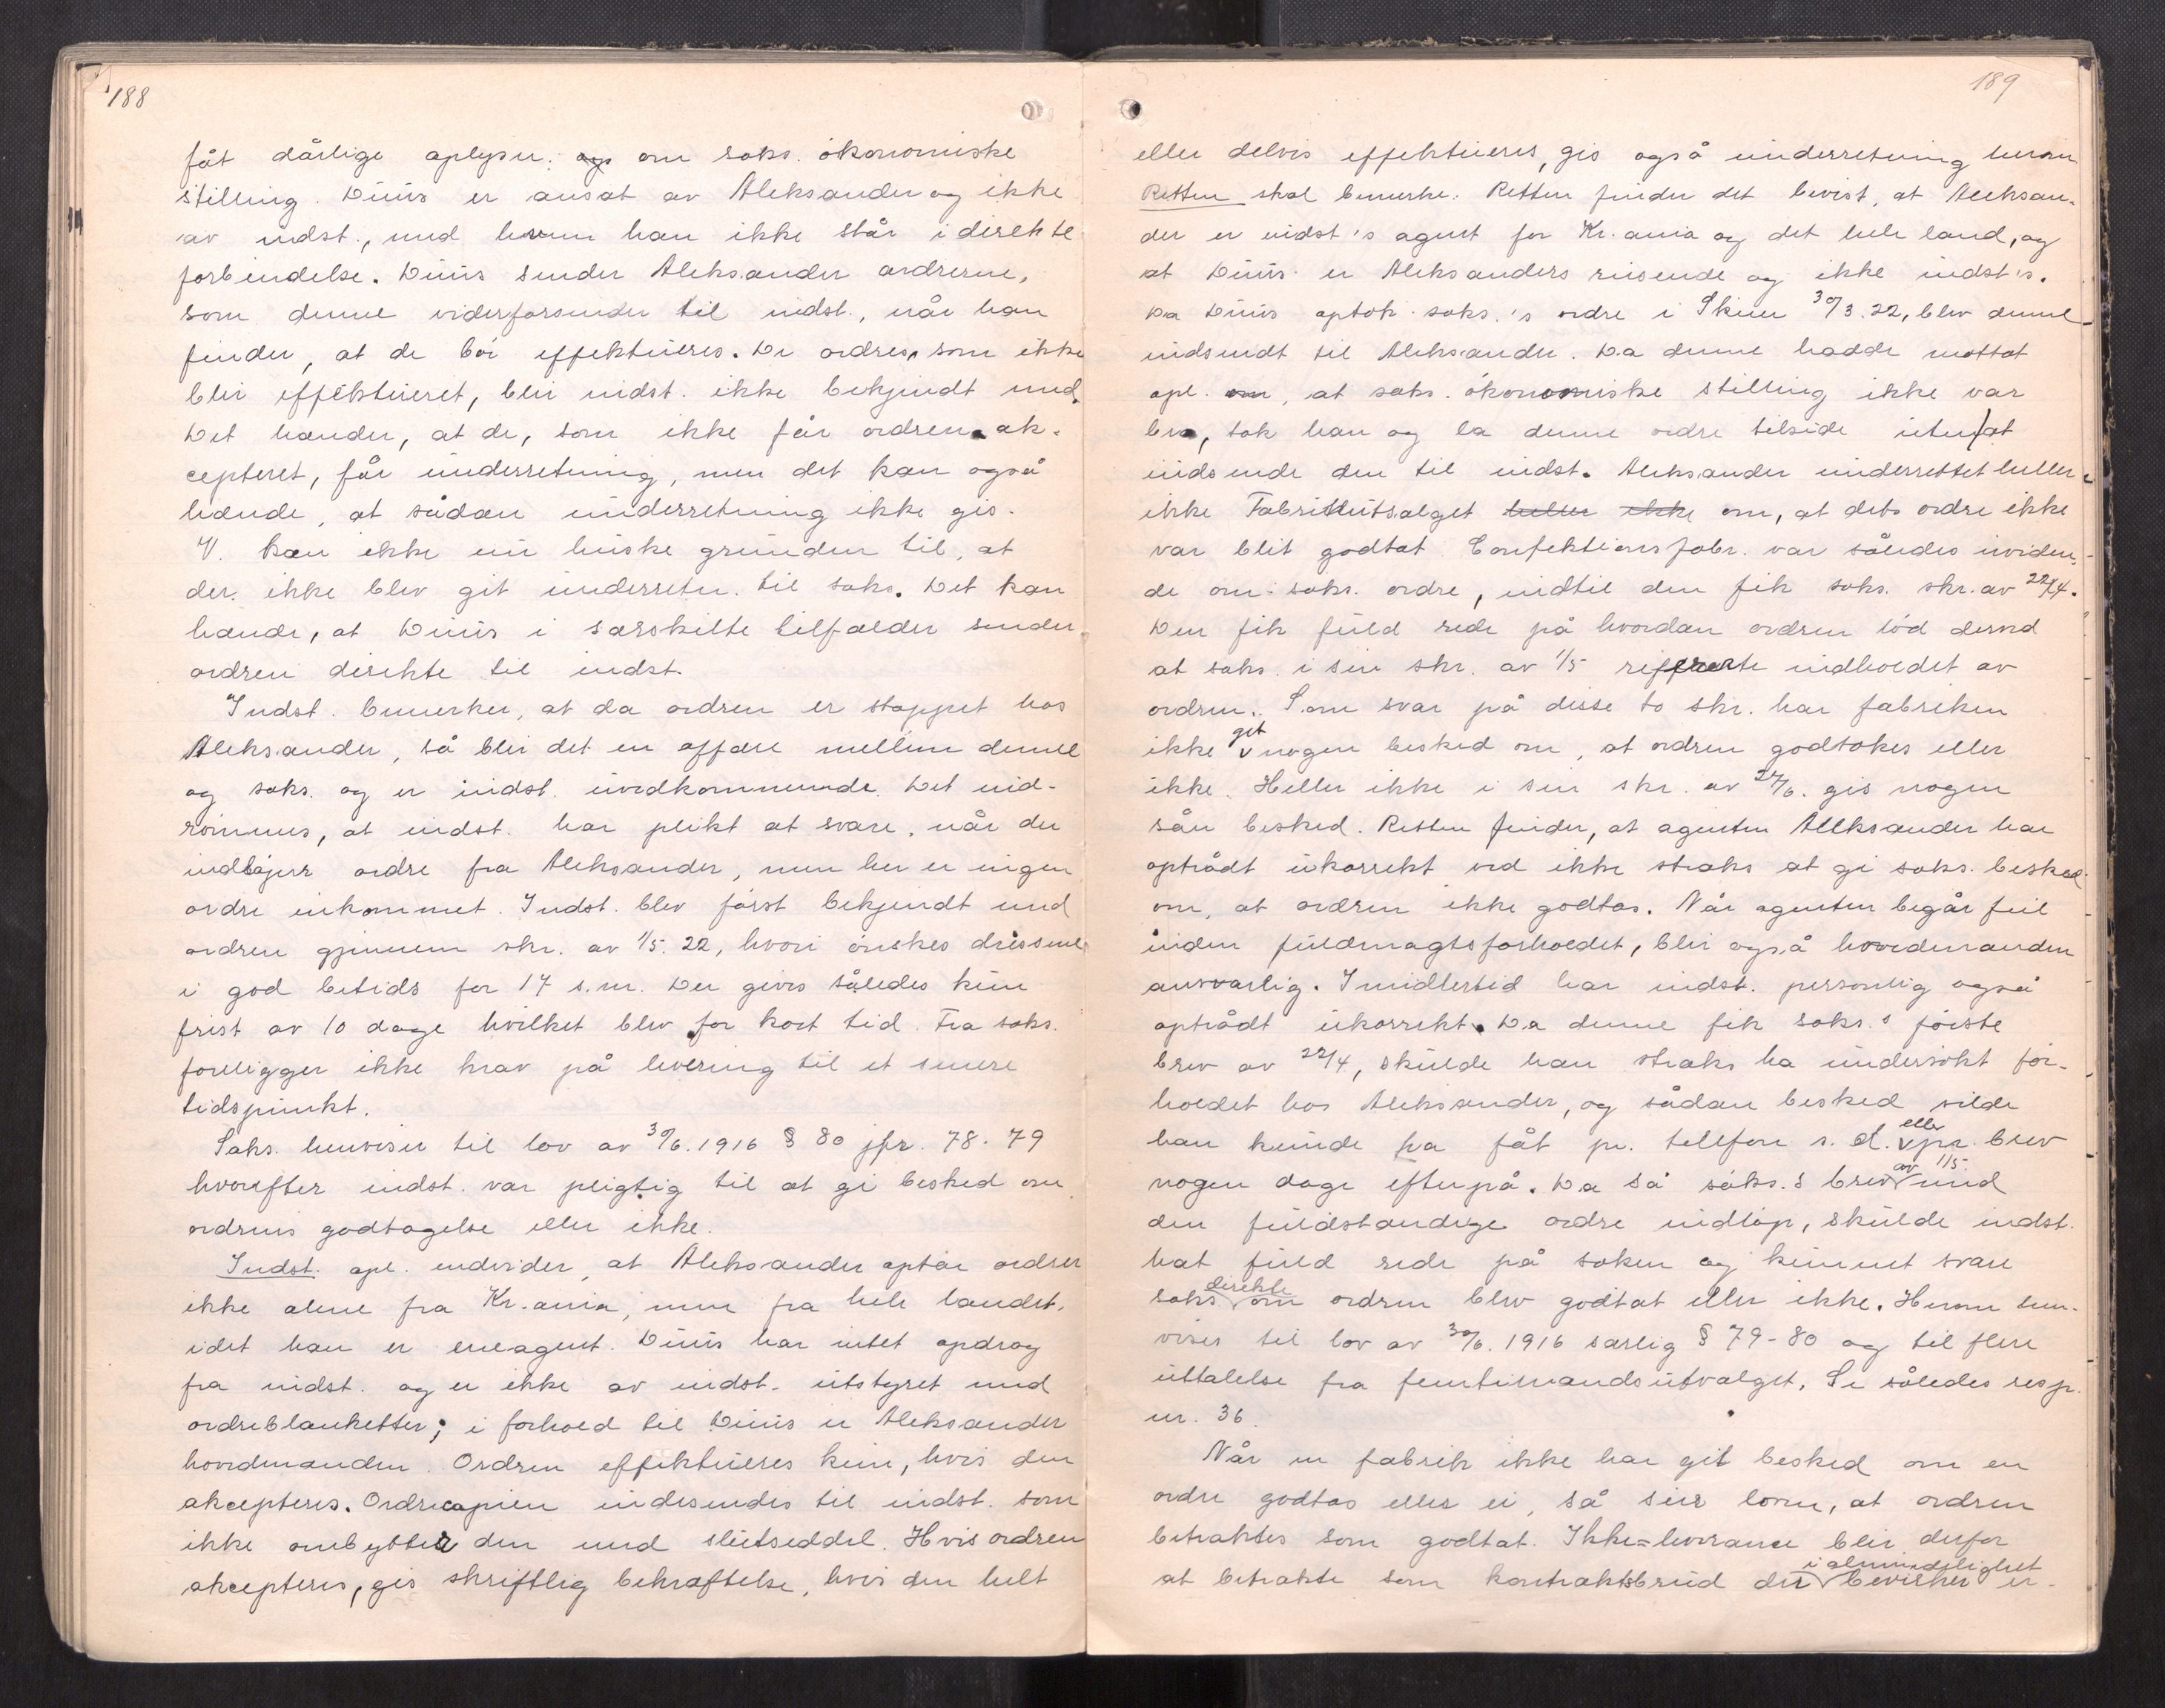 188
fåt dårlige oplysn. om saks. økonomiske
stilling. Duus er ansat av Aleksander og ikke
av indst., med hvem han ikke står i direkte
forbindelse. Duus sender Aleksander ordrerne,
som denne viderforsender til indst., når han
finder, at de bør effektueres. De ordres, som ikke
blir effektueret, blir indst. ikke bekjendt med.
Det hænder, at de, som ikke får ordren ak-
cepteret, får underretning, men det kan også
hænde, at sådan underretning ikke gis.
V. kan ikke nu huske grunden til, at
der ikke blev git underretn. til saks. Det kan
hænde, at Duus i særskilte tilfælder sender
ordren direkte til indst.
Indst. bemerker, at da ordren er stoppet hos
Aleksander, så blir det en affære mellem denne
og saks. og er indst. uvedkommende. Det ind-
rømmes, at indst. har plikt at svare, når der
indløper ordre fra Aleksander, men her er ingen
ordre inkommet. Indst. blev først bekjendt med
ordren gjennem skr. av 1/5.22, hvori ønskes dressene
i god betids for 17 s.m. Der gives således kun
frist av 10 dage hvilket blev for kort tid. Fra saks.
foreligger ikke krav på levering til et senere
tidspunkt.
Saks. henviser til lov av 30/6.1916 § 80 jfr. 78-79
hvorefter indst. var pligtig til at gi besked om
ordrens godtagelse eller ikke.
Indst. opl. endvider, at Aleksander optar ordrer
ikke alene fra Kr.ania, men fra hele landet,
idet han er eneagent. Duus har intet opdrag
fra indst. og er ikke av indst. utstyret med
ordreblanketter; i forhold til Duus er Aleksander
hovedmanden. Ordren effektueres kun, hvis den
akcepteres. Ordrecopien indesendes til indst. som
ikke ombytter den med slutseddel. Hvis ordren
akcepteres, gis skriftlig bekræftelse, hvis den helt
189
eller delvis effektueres, gis også underretning herom
Retten skal bemerke: Retten finder det bevist, at Aleksan-
der er indst's agent for Kr.ania og det hele land, og
at Duus er Aleksanders reisende og ikke indst's.
Da Duus optok saks.'s ordre i Skien 30/3.22, blev denne
indsendt til Aleksander. Da denne hadde mottat
opl. om, at saks. økonomiske stilling ikke var
bra, tok han og la denne ordre tilside uten at
indsende den til indst. Aleksander underrettet heller
ikke Fabrikutsalget heller ikke om, at dets ordre ikke
var blit godtat. Confektionsfabr. var således uviden-
de om saks. ordre, indtil den fik saks. skr. av 22/4.
Den fik fuld rede på hvordan ordren lød derved
at saks. i sin skr. av 1/5 refererte indholdet av
ordren. Som svar på disse to skr. har fabriken
ikke git nogen besked om, at ordren godtokes eller
ikke. Heller ikke i sin skr. av 27/6. gis nogen
sån besked. Retten finder, at agenten Aleksander har
optrådt ukorrekt ved ikke straks at gi saks. besked
om, at ordren ikke godtas. Når agenten begår feil
inden fuldmagtsforholdet, blir også hovedmanden
ansvarlig. Imidlertid har indst. personlig også
optrådt ukorrekt. Da denne fik saks.s første
brev av 22/4, skulde han straks ha undersøkt for-
holdet hos Aleksander, og sådan besked vilde
han kunde ha fåt pr. telefon s. d. eller pr. brev
nogen dage efterpå. Da så saks.s brev av 1/5 med
den fuldstændige ordre indløp, skulde indst.
hat fuld rede på saken og kunnet svare
saks direkte om ordren blev godtat eller ikke. Herom hen-
vises til lov av 30/6.1916 særlig § 79-80 og til flere
uttalelse fra femtimandsutvalget. Se således resp.
nr. 36.
Når en fabrik ikke har git besked om en
ordre godtas eller ei, så sier loven, at ordren
betraktes som godtat. Ikke-leverance blir derfor
at betrakte som kontraktsbrud der i almindelighet bevirker er-